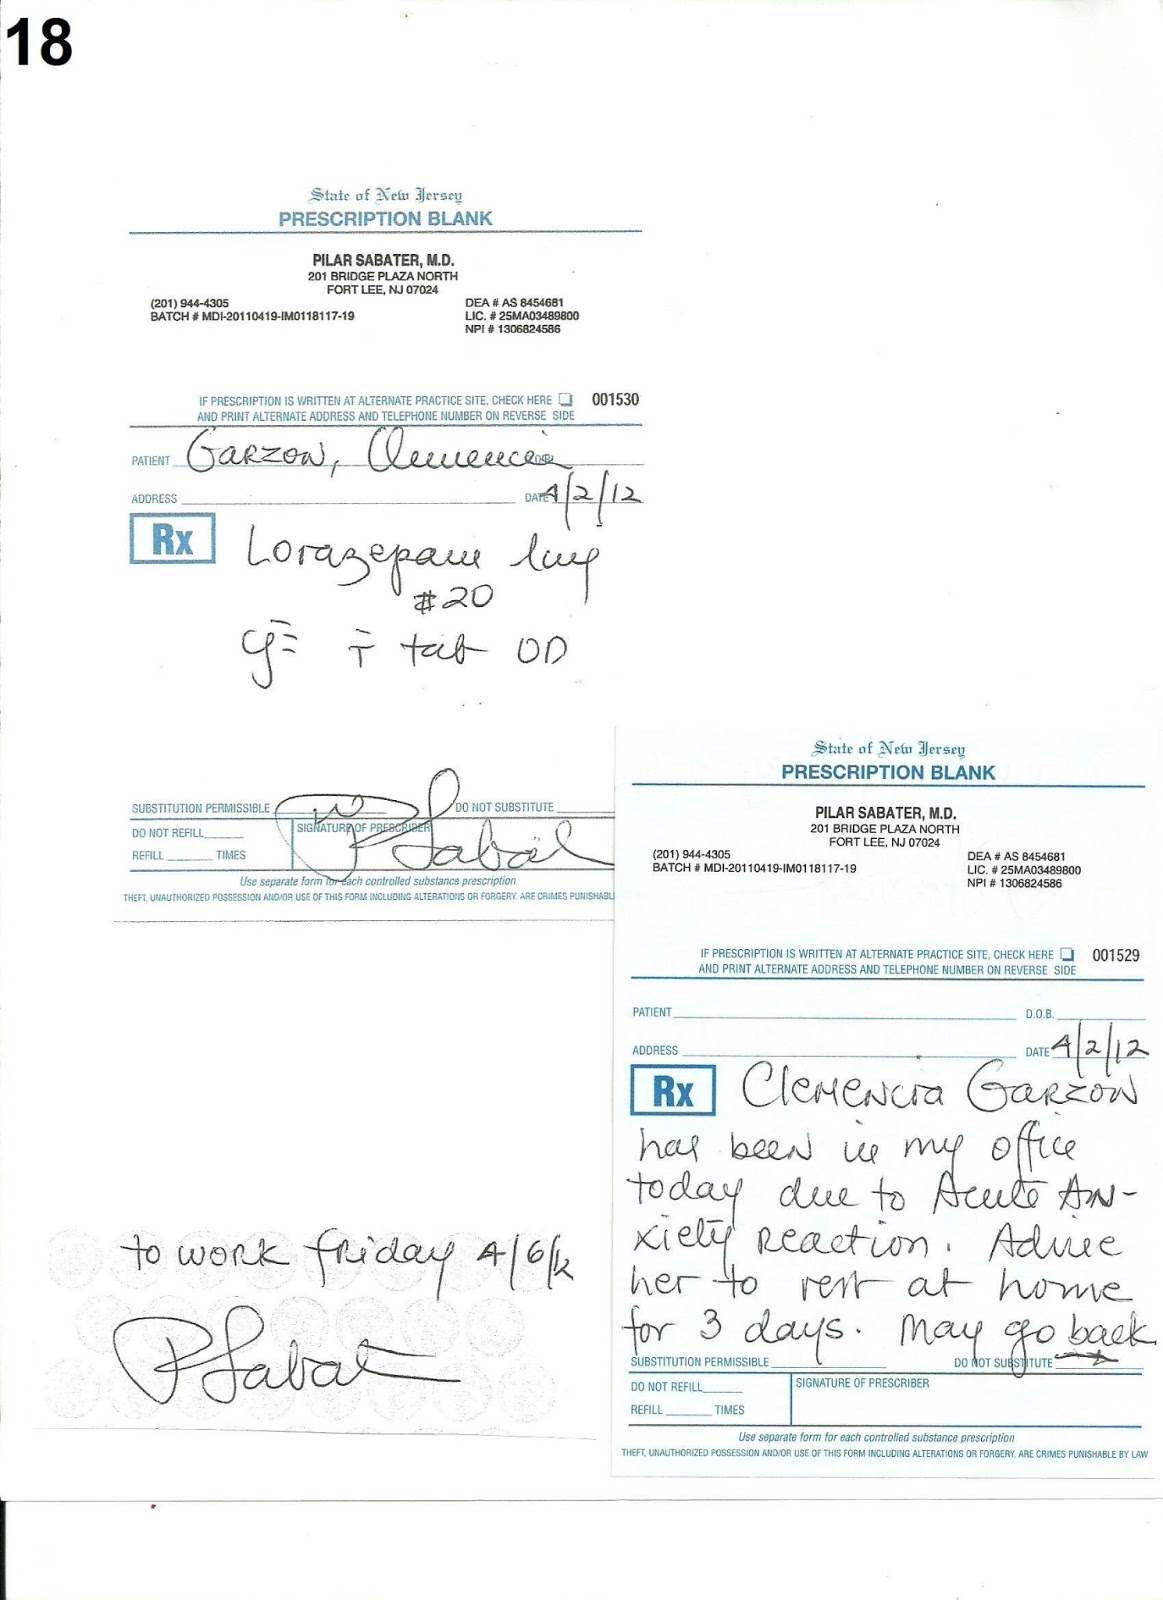 18
State of New Jersey
PRESCRIPTION BLANK
PILAR SABATER, M.D.
201 BRIDGE PLAZA NORTH
FORT LEE, NJ 07024
(201) 944-4305 DEA # AS 8454681
BATCH # MDI-20110419-IM0118117-19 LIC. # 25MA03489800
NPI # 1306824586
IF PRESCRIPTION IS WRITTEN AT ALTERNATE PRACTICE SITE, CHECK HERE 001530
AND PRINT ALTERNATE ADDRESS AND TELEPHONE NUMBER ON REVERSE SIDE
PATIENT GARZON, Clemencia
ADDRESS DATE 4/2/12
Rx Lorazepam 1mg
#20
T tab OD
SUBSTITUTION PERMISSIBLE DO NOT SUBSTITUTE
DO NOT REFILL SIGNATURE OF PRESCRIBER P Sabater
REFILL TIMES
Use separate form for each controlled substance prescription
THEFT, UNAUTHORIZED POSSESSION AND/OR USE OF THIS FORM INCLUDING ALTERATIONS OR FORGERY, ARE CRIMES PUNISHABL
State of New Jersey
PRESCRIPTION BLANK
PILAR SABATER, M.D.
201 BRIDGE PLAZA NORTH
FORT LEE, NJ 07024
(201) 944-4305 DEA # AS 8454681
BATCH # MDI-20110419-IM0118117-19 LIC. # 25MA03489800
NPI # 1306824586
IF PRESCRIPTION IS WRITTEN AT ALTERNATE PRACTICE SITE, CHECK HERE 001529
AND PRINT ALTERNATE ADDRESS AND TELEPHONE NUMBER ON REVERSE SIDE
PATIENT D.O.B.
ADDRESS DATE 4/2/12
Rx Clemencia Garzon
has been in my office
today due to Acute An-
xiety reaction. Advice
her to rest at home
for 3 days. May go back
SUBSTITUTION PERMISSIBLE DO NOT SUBSTITUTE
DO NOT REFILL SIGNATURE OF PRESCRIBER
REFILL TIMES
Use separate form for each controlled substance prescription
THEFT, UNAUTHORIZED POSSESSION AND/OR USE OF THIS FORM INCLUDING ALTERATIONS OR FORGERY, ARE CRIMES PUNISHABLE BY LAW
to work friday 4/6/12
P Sabater